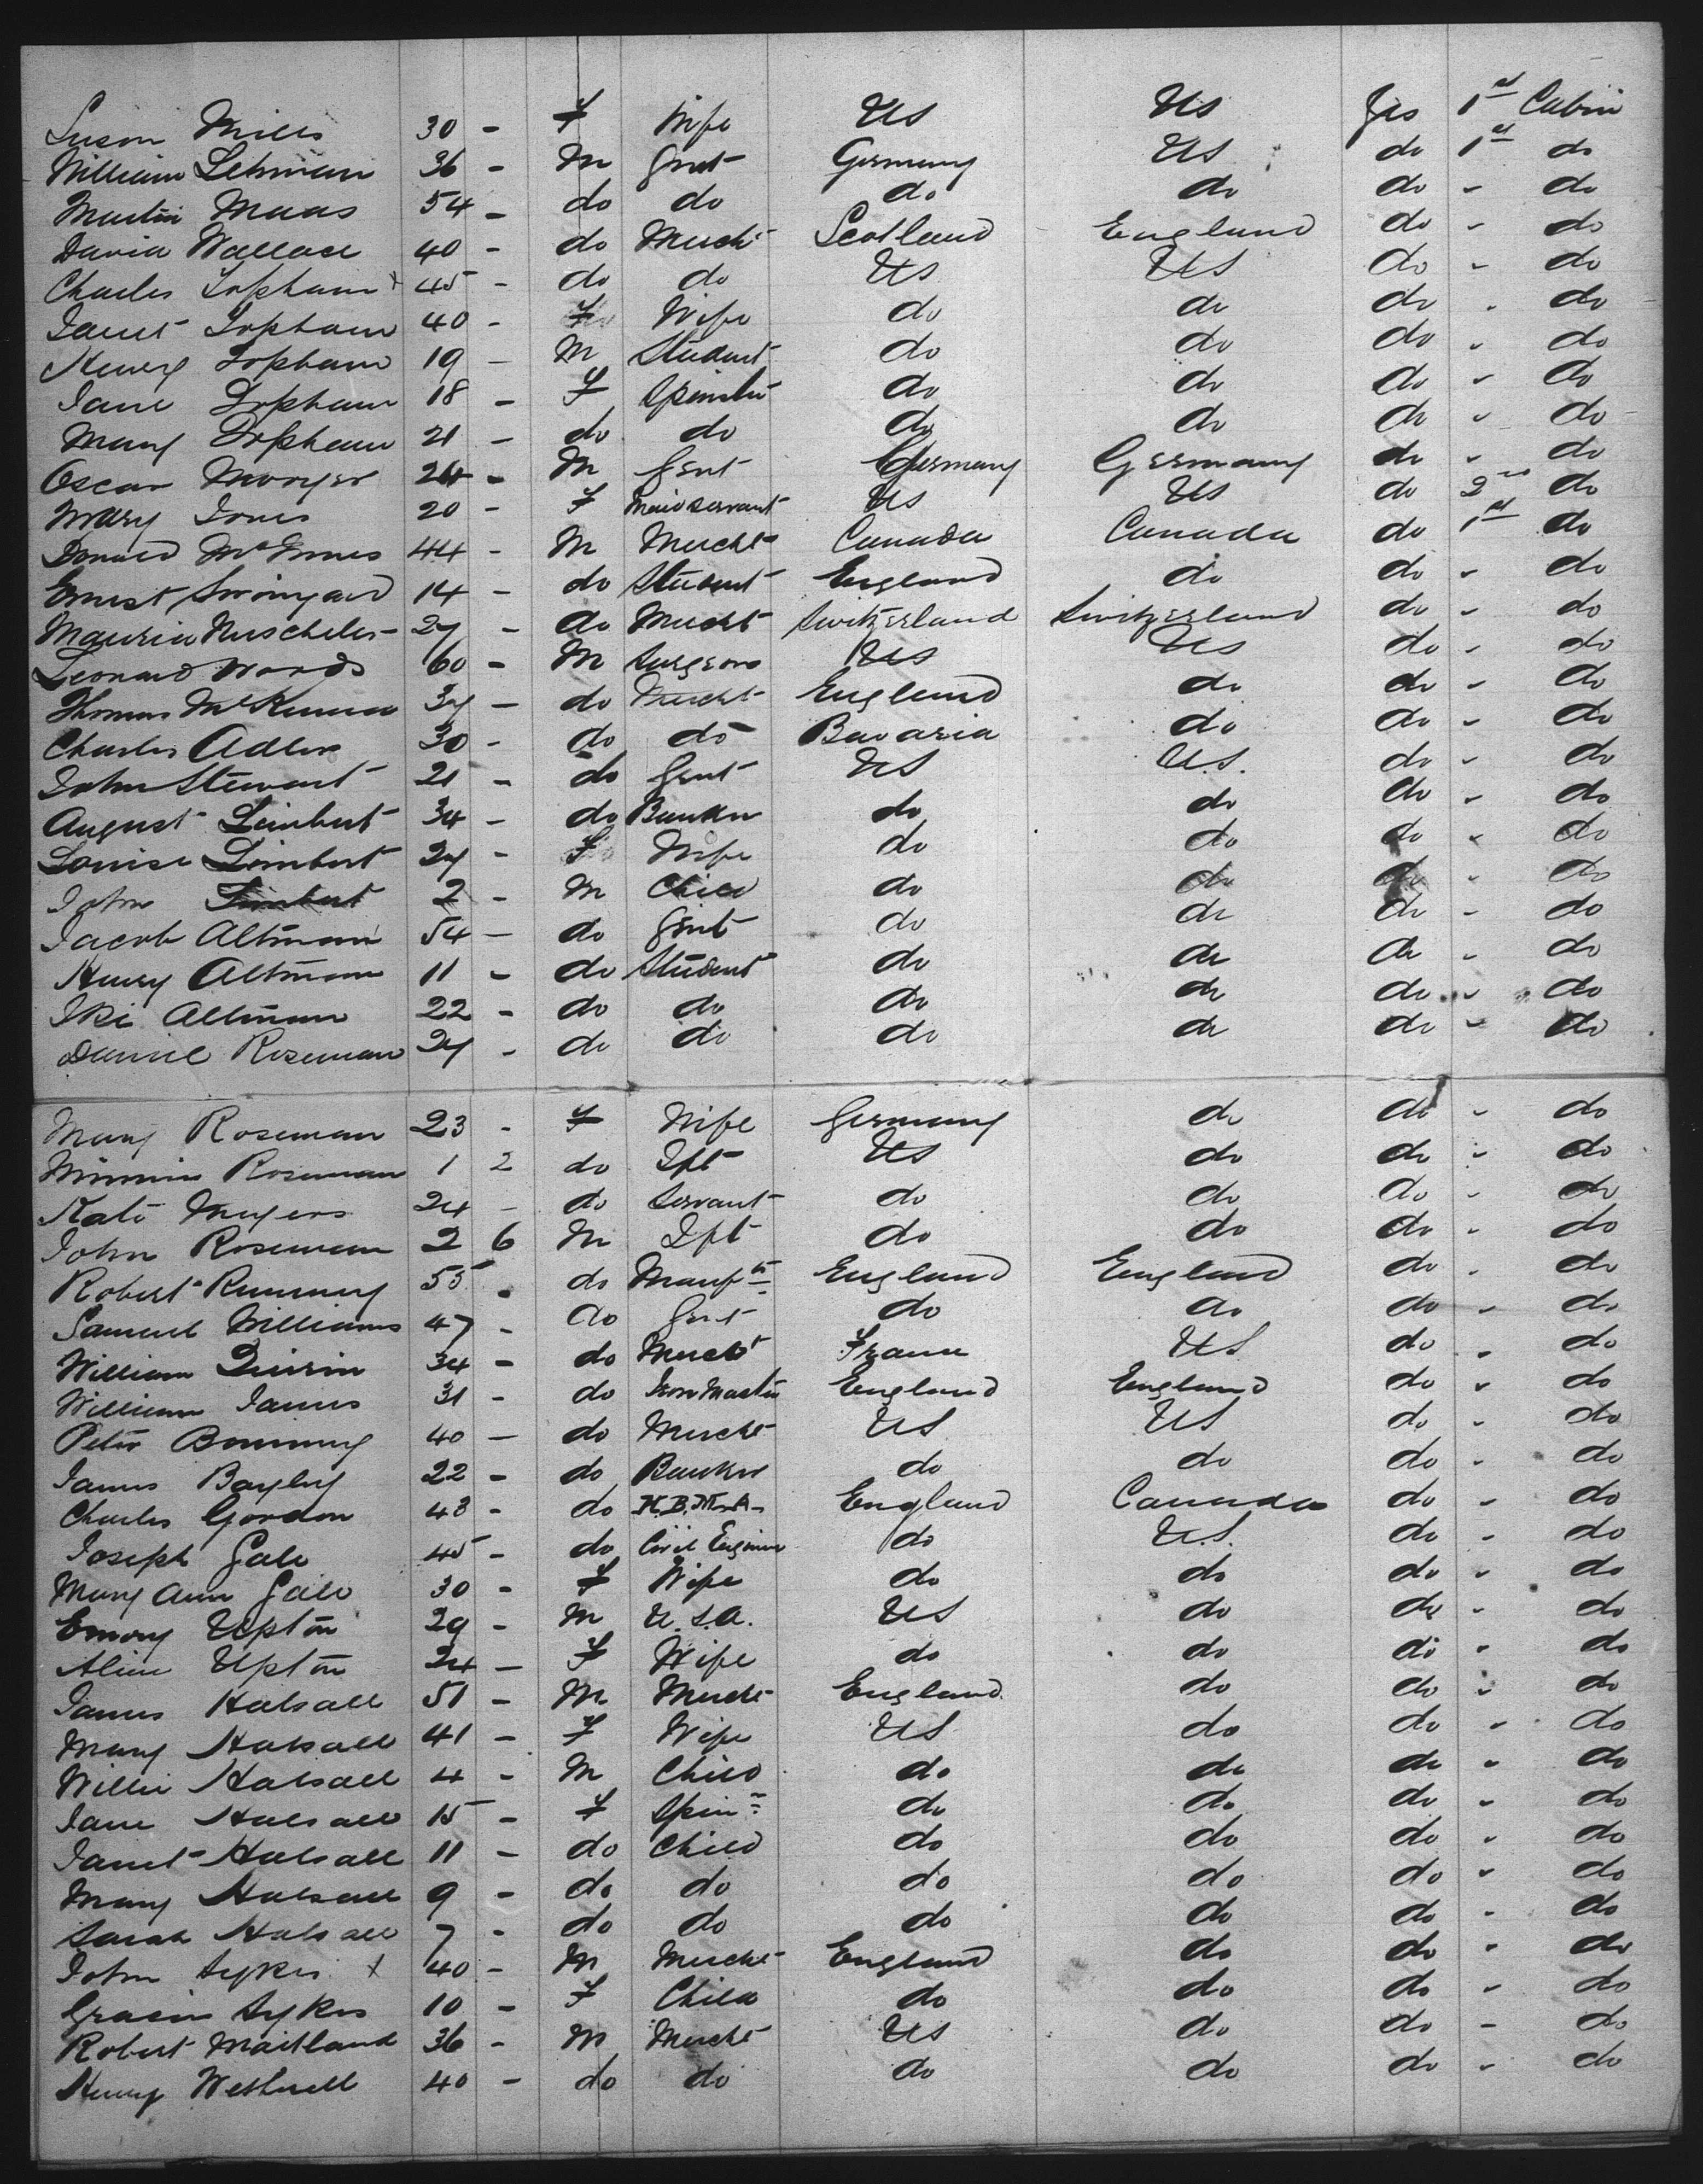 Susan Mills 30 - F Wife US US Yes 1st Cabin
William Lehman 36 - M Gent Germany US do 1st do
Martin Maas 54 - do do do do do " do
David Wallace 40 - do Mercht Scotland England do " do
Charles Topham x 45 - do do US US do " do
Janet Topham 40 - F Wife do do do " do
Henry Topham 19 - M Student do do do " do
Jane Topham 18 - F Spinster do do do " do
Mary Topham 21 - do do do do do " do
Oscar 24 - M Gent Germany Germany do " do
Mary Jones 20 - F Maid servant US US do 2nd do
Donald McInnes 44 - M Mercht Canada Canada do 1st do
Ernest Swinyard 14 - do Student England do do " do
27 - do Mercht Switzerland Switzerland do " do
Leonard Woods 60 - M Surgeon US US do " do
Thomas McKenna 37 - do Mercht England do do " do
Charles Adler 30 - do do Bavaria do do " do
John Stewart 21 - do Gent US U.S. do " do
August Limbert 34 - do Banker do do do " do
Louise Limbert 27 - F Wife do do do " do
John Limbert 2 - M Child do do do " do
Jacob Altman 54 - do Gent do do do " do
Henry Altman 11 - do Student do do do " do
Ike Altman 22 - do do do do do " do
Daniel Roseman 27 - do do do do do " do
Mary Roseman 23 - F Wife Germany do do " do
Minnie Roseman 1 2 do Ift US do do " do
Kate Meyers 24 - do Servant do do do " do
John Roseman 2 6 M Ift do do do " do
Robert 55 - do Manufr England England do " do
Samuel Williams 47 - do Gent do do do " do
William Quirin 34 - do Mercht France US do " do
William James 31 - do Iron Master England England do " do
Peter 40 - do Mercht US US do " do
James Bayley 22 - do Banker do do do " do
Charles Gordon 43 - do England Canada do " do
Joseph Gale 45 - do Civil Engineer do U.S. do " do
Mary Ann Gale 30 - F Wife do do do " do
Emory Upton 29 - M U.S.A. US do do " do
Alice Upton 24 - F Wife do do do " do
James Halsall 51 - M Mercht England do do " do
Mary Halsall 41 - F Wife US do do " do
Willie Halsall 4 - M Child do do do " do
Jane Halsall 15 - F Spinr do do do " do
Janet Halsall 11 - do Child do do do " do
Mary Halsall 9 - do do do do do " do
Sarah Halsall 7 - do do do do do " do
John Sykes x 40 - M Mercht England do do " do
Gracie Sykes 10 - F Child do do do " do
Robert Maitland 36 - M Mercht US do do " do
Henry 40 - do do do do do " do